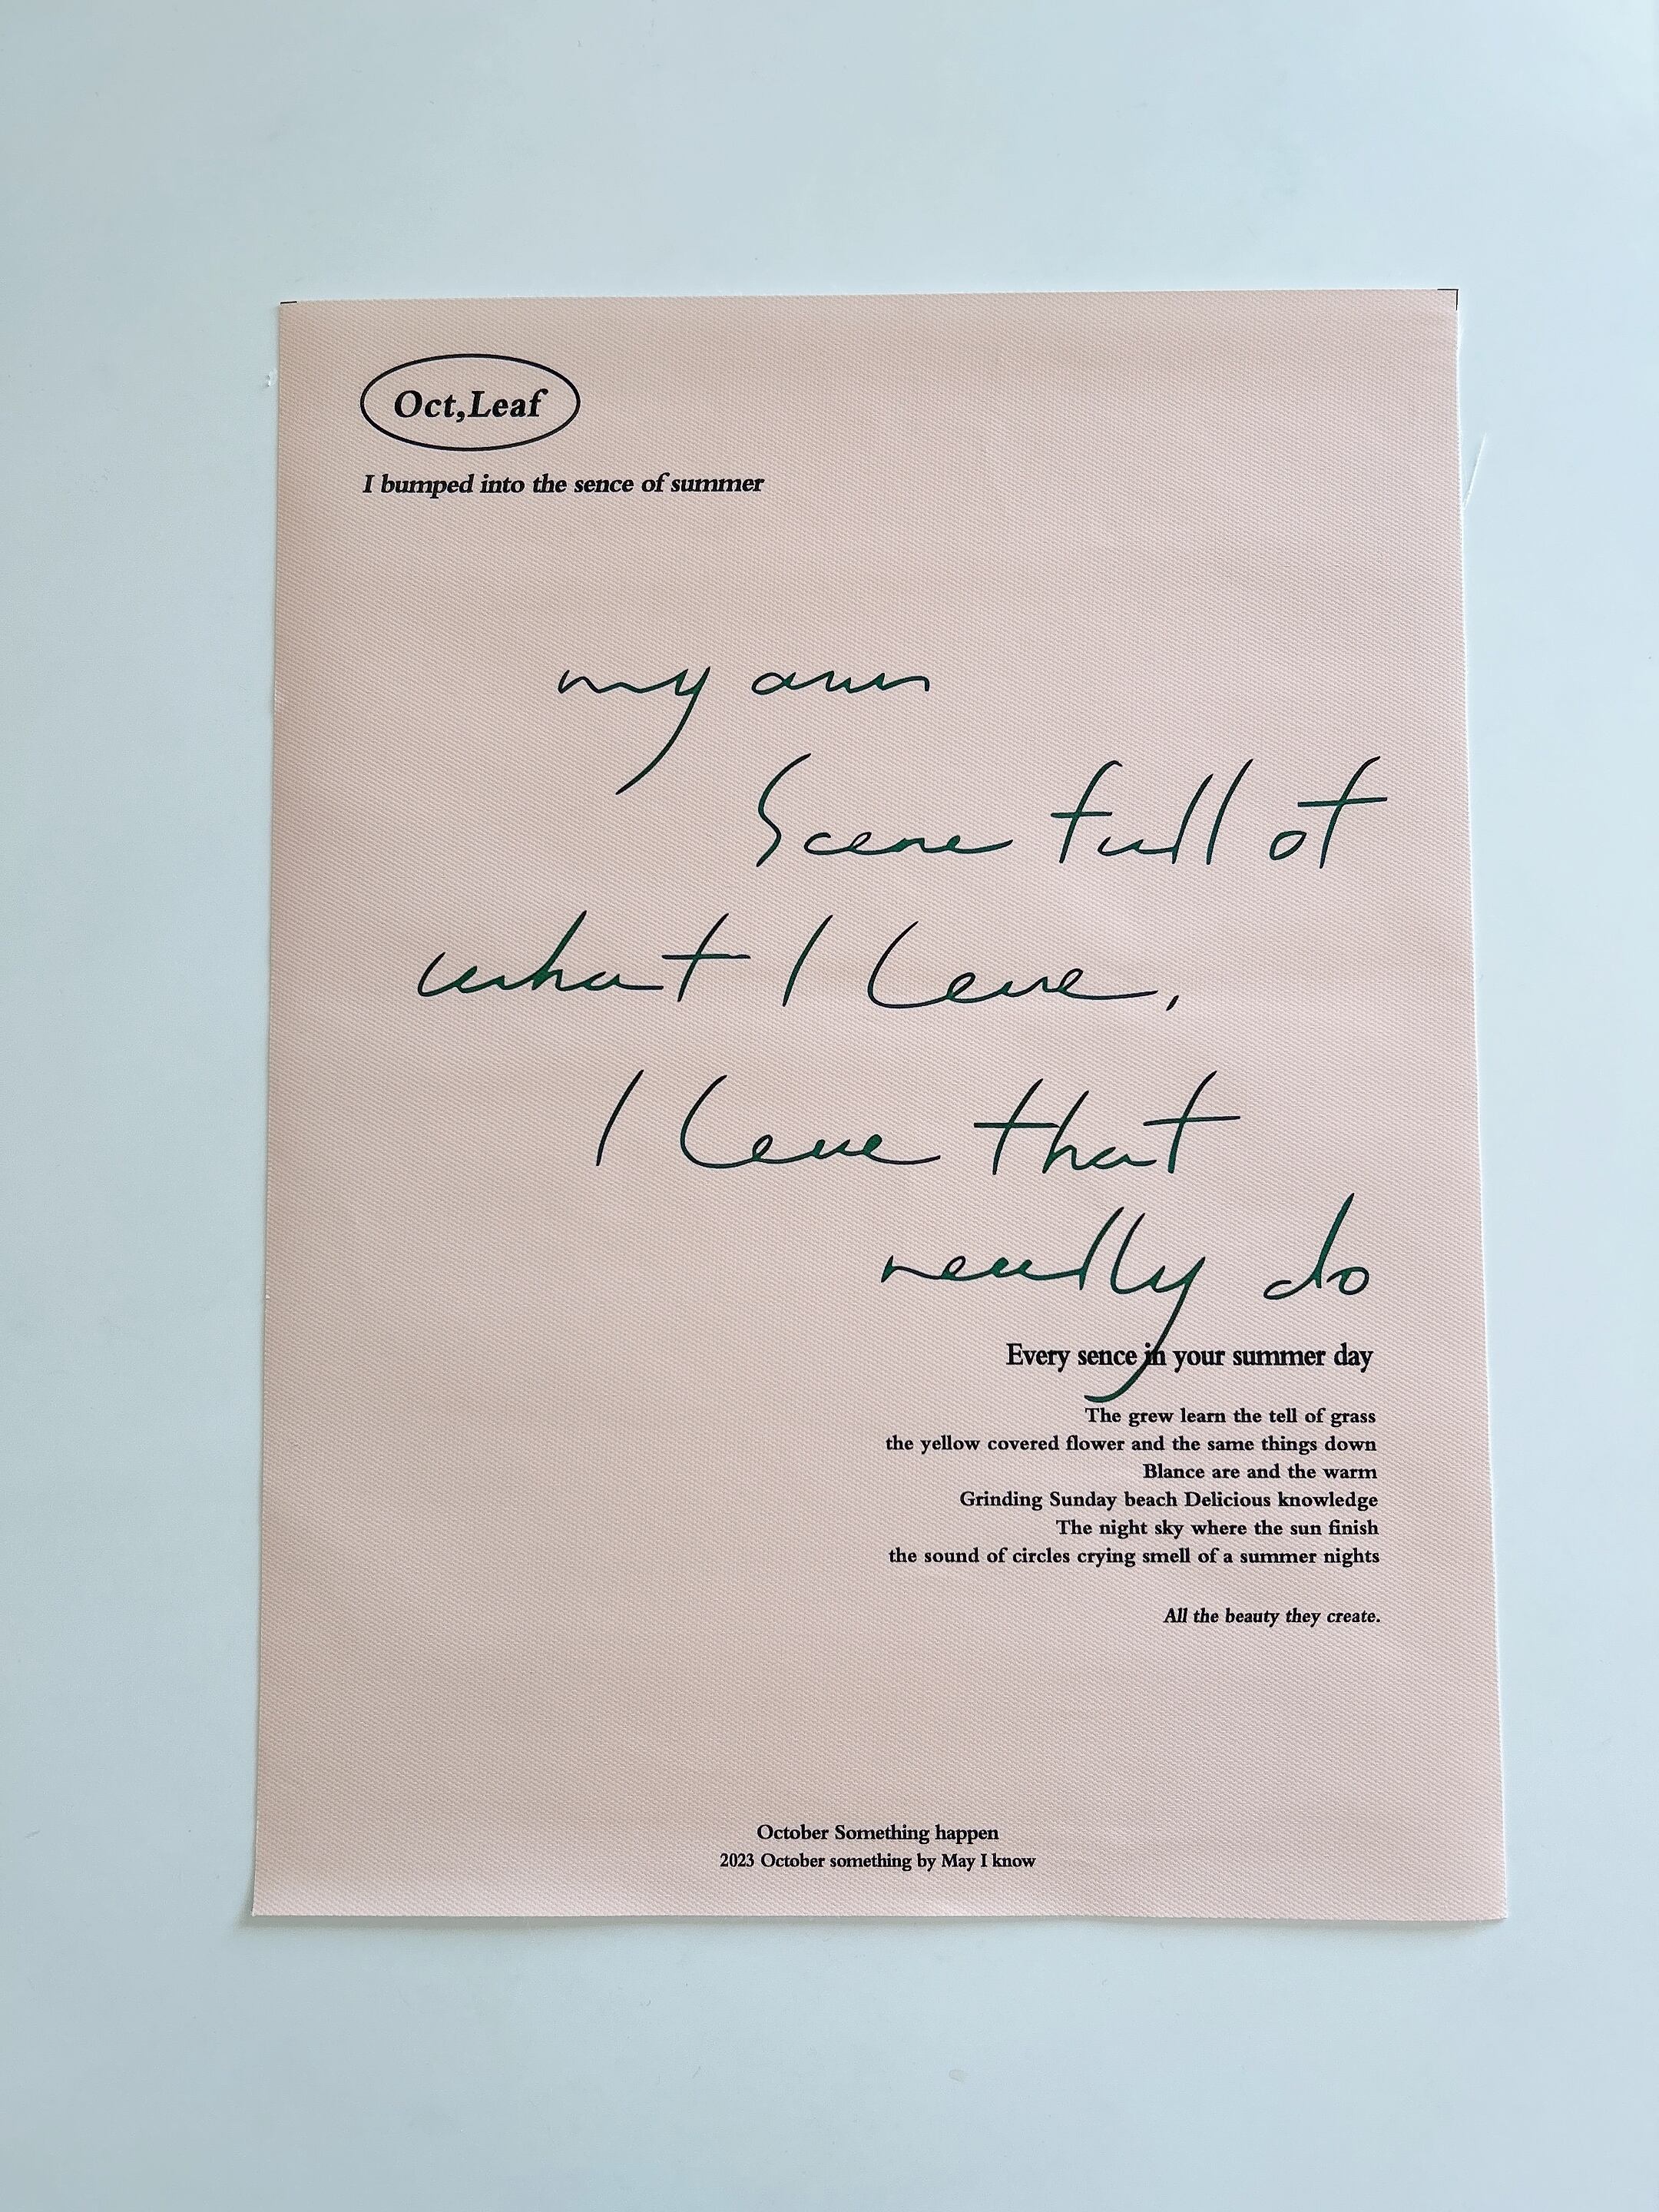 Oct,Leaf
I bumped into the sence of summer
my own
Scene full of
what I love,
I love that
really do
Every sence in your summer day
The grew learn the tell of grass
the yellow covered flower and the same things down
Blance are and the warm
Grinding Sunday beach Delicious knowledge
The night sky where the sun finish
the sound of circles crying smell of a summer nights
All the beauty they create.
October Something happen
2023 October something by May I know